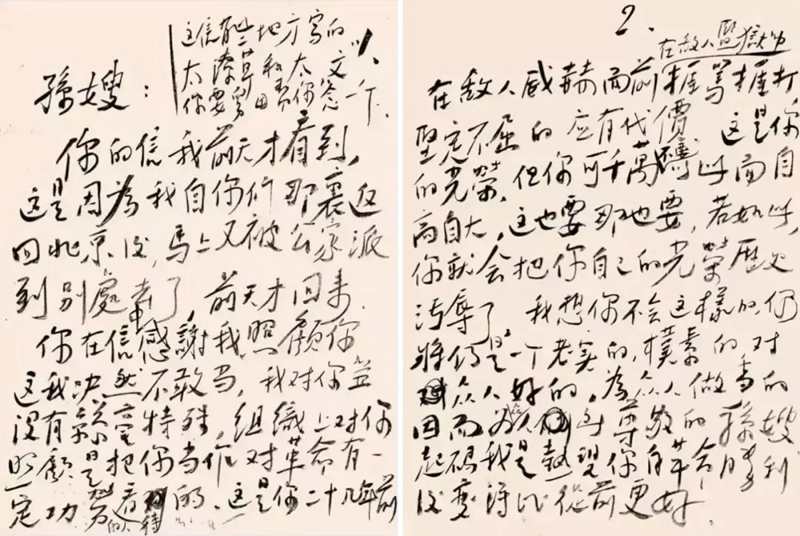 这信 地方写的
太潦草和太文
你要 你念一下
孫嫂：
你的信我前天才看到，
这是因為我自你们那裏返
回北京後，馬上又被公家派
到别處去了，前天才回来.
你在信感謝我照顧你
这我决然不敢当，我对你並
没有丝毫特殊，組織上对你
照顧是把你当作对革命有一
定功劳的看待的。这是你二十几年前
2.
在敌人监獄中
在敌人威赫面前捱罵捱打
堅定不屈的应有代價 这是你
的光荣，但你可千萬 此而自
高自大，这也要那也要，若如此，
你就会把你自己的光荣歷史
污辱了 我想你不会这樣的，仍
將仍是一个老实的，樸素的，对
众人好的，為众人做事的
因而 尊敬的孫嫂
起码我是熱望你自革命勝利
後变得比從前更好.